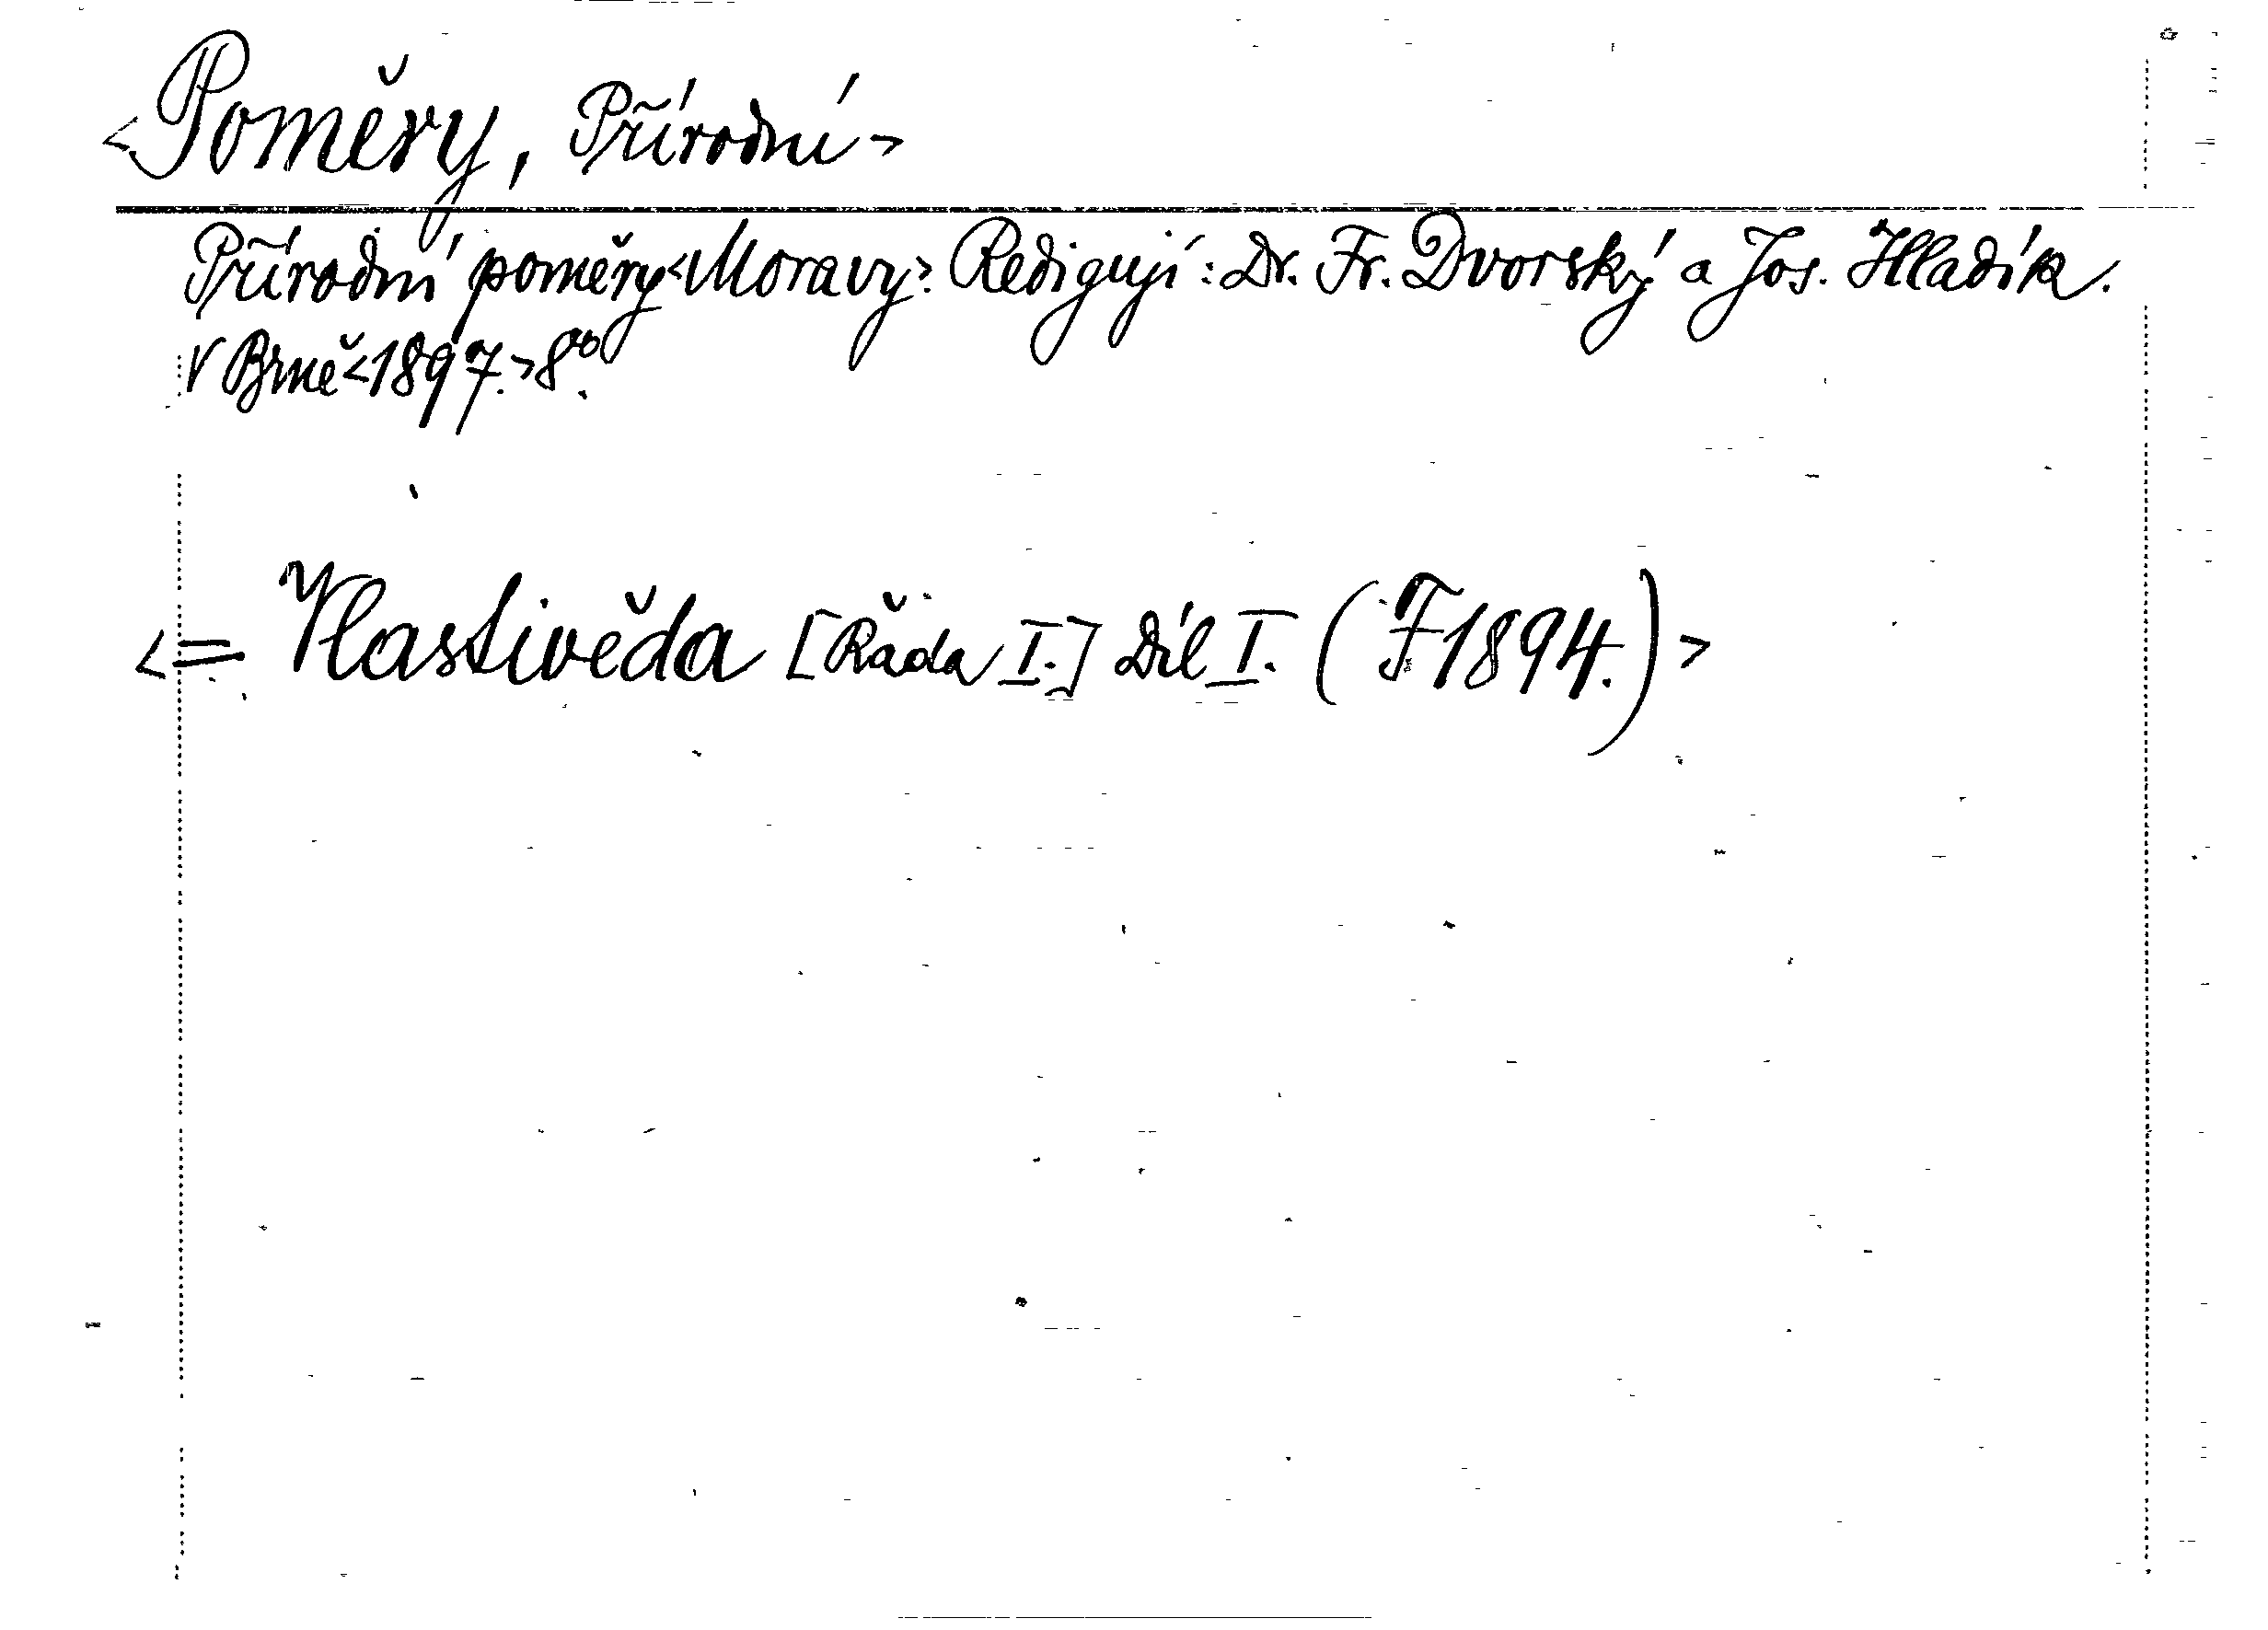 <Poměry, Přírodní>
Přírodní poměry <Moravy>. Redigují: Dr. Fr. Dvorský a Jos. Hladík.
V Brně <1897.> 8º.
<= Vlastivěda [Řada I.] Díl I. (F 1894.)>